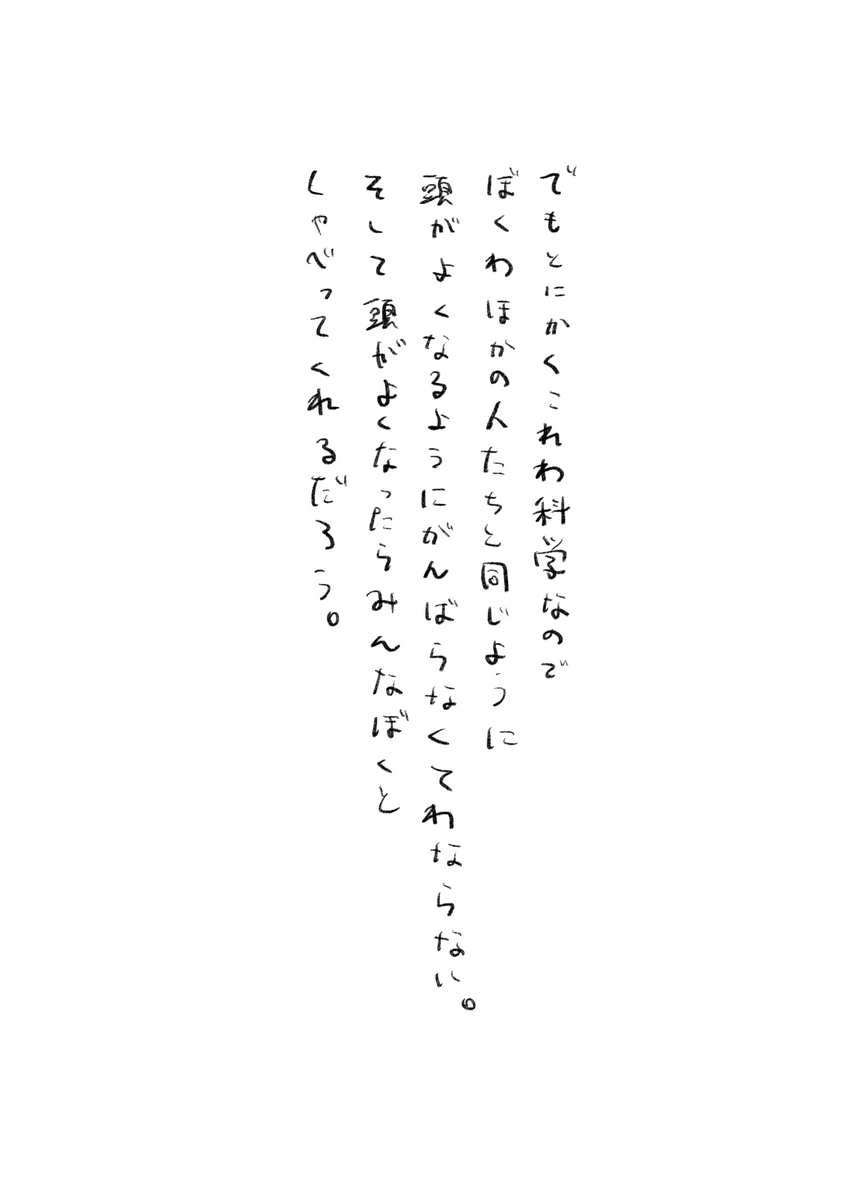 でもとにかくこれわ科学なので
ぼくわほかの人たちと同じように
頭がよくなるようにがんばらなくてわならない。
そして頭がよくなったらみんなぼくと
しゃべってくれるだろう。